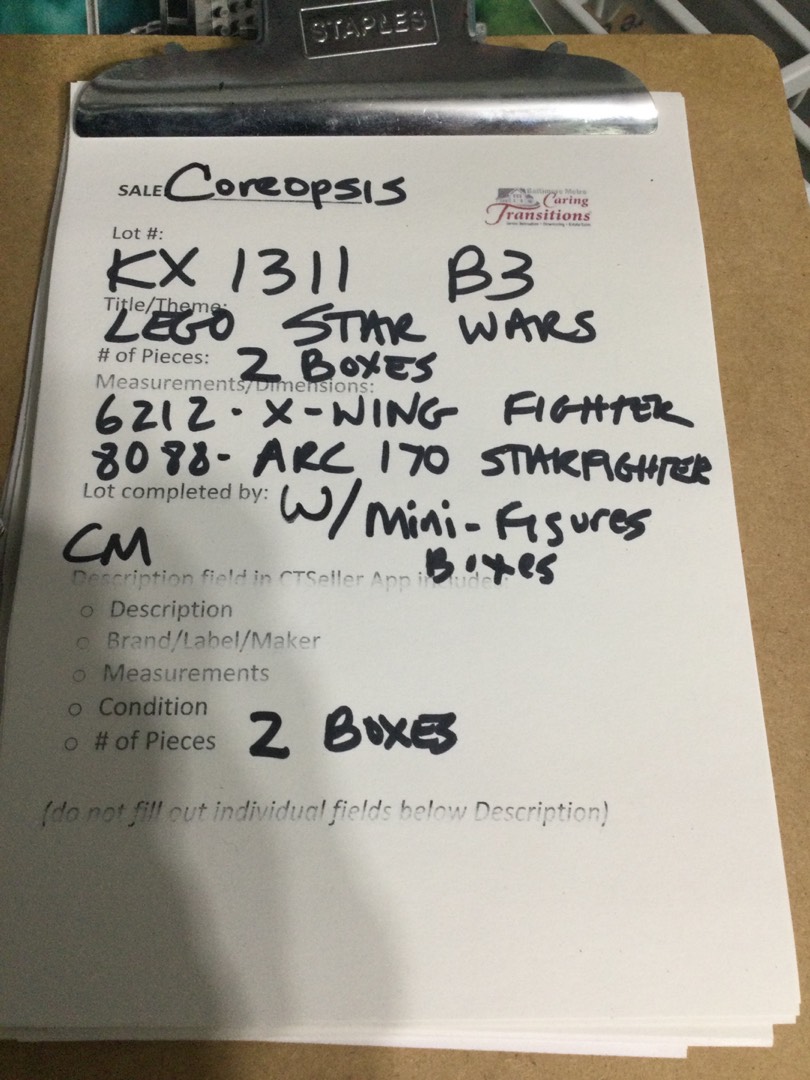 STAPLES
SALE Coreopsis
Baltimore Metro
Caring
Transitions
Lot #:
KX 1311 B3
Title/Theme:
LEGO STAR WARS
# of Pieces: 2 BOXES
Measurements/Dimensions:
6212 - X-WING FIGHTER
8088 - ARC 170 STARFIGHTER
Lot completed by: W/ Mini-Figures
CM Boxes
Description field in CTSeller App includes:
Description
Brand/Label/Maker
Measurements
Condition
# of Pieces 2 BOXES
(do not fill out individual fields below Description)